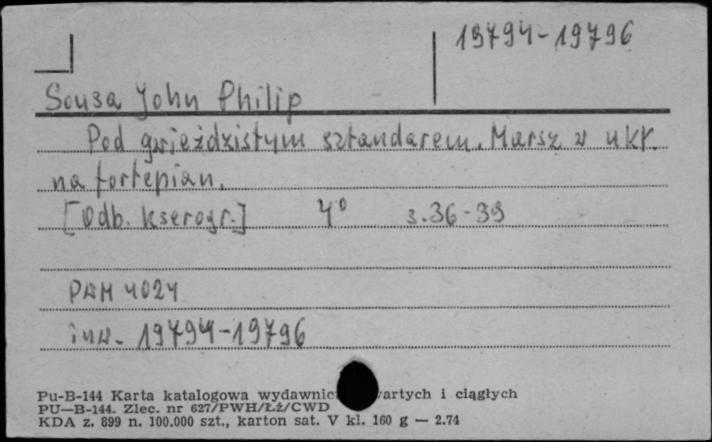 19794-19796
Sousa John Philip
Pod gwieździstym sztandarem. Marsz w ukł.
na fortepian.
[Odb. kserogr.] 4° s. 36-39
PWM 4024
inw. 19794-19796
Pu-B-144 Karta katalogowa wydawnic artych i ciągłych
PU—B-144. Zlec. nr 627/PWH/Łż/CWD
KDA z. 899 n. 100.000 szt., karton sat. V kl. 160 g — 2.74